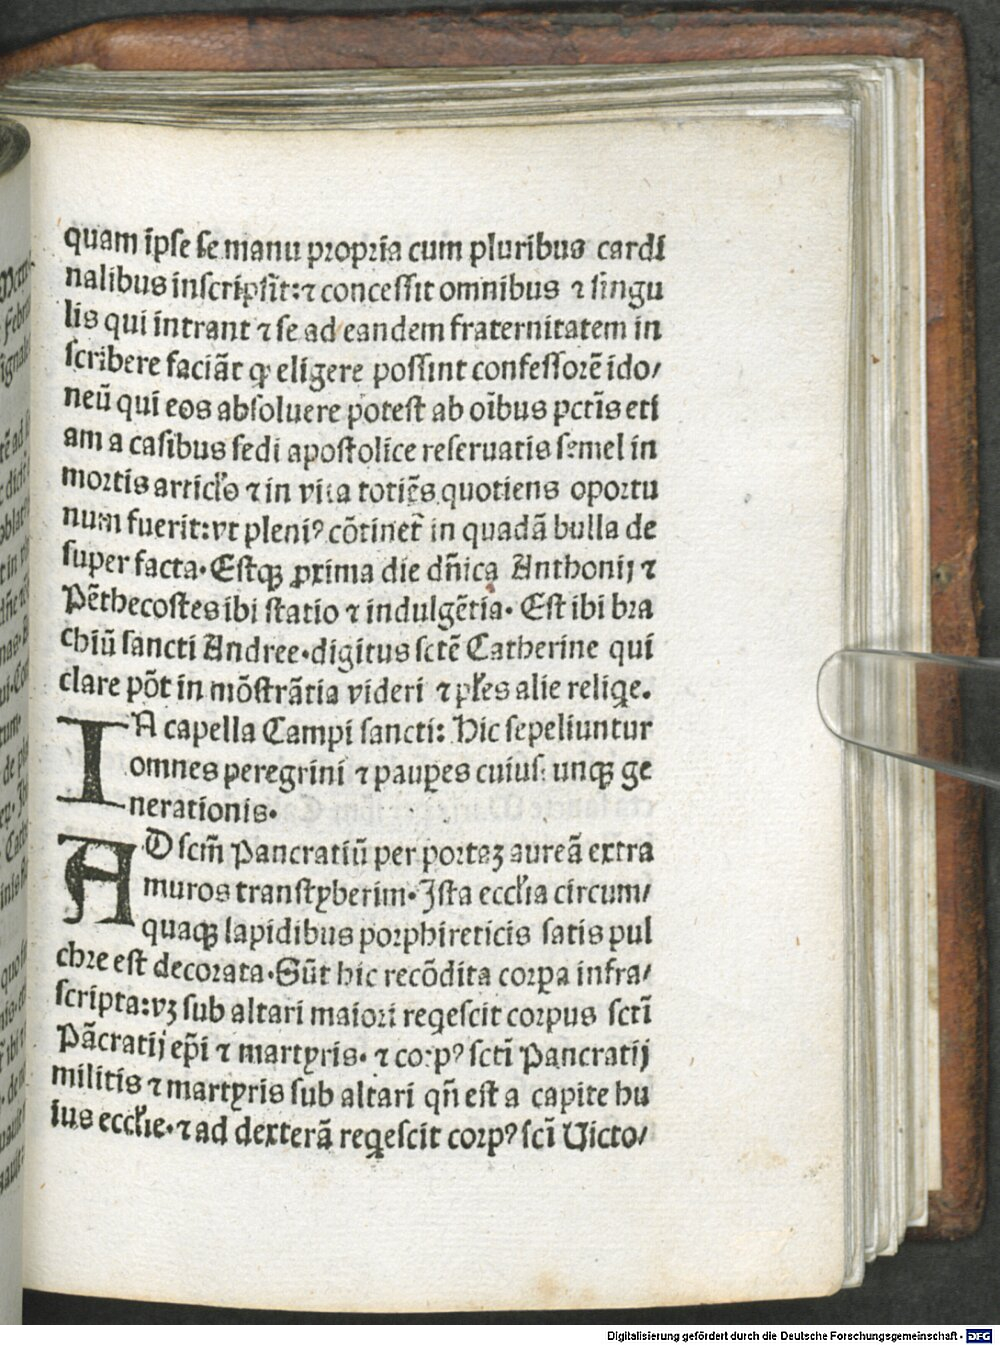 quam ipse se manu propria cum pluribus cardi
nalibus inscripsit: ⁊ concessit omnibus ⁊ singu
lis qui intrant ⁊ se ad eandem fraternitatem in
scribere faciāt ꝙ eligere possint confessorē ido/
neū qui eos absoluere potest ab oībus pctīs eti
am a casibus sedi apostolice reseruatis semel in
mortis articl'o ⁊ in vita totiēs quotiens oportu
num fuerit: vt pleniꝰ cōtinet̄ in quadā bulla de
super facta. Estqꝫ ꝓxima die dn̄ica Anthonij ⁊
Pēthecostes ibi statio ⁊ indulgētia. Est ibi bra
chiū sancti Andree. digitus sctē Catherine qui
clare pōt in mōstrātia videri ⁊ pl'es alie reliqe.
IA capella Campi sancti: Hic sepeliuntur
omnes peregrini ⁊ pauꝑes cuiuscunqꝫ ge
nerationis.
AD scm̄ Pancratiū per portaꝫ aureā extra
muros transtyberim. Ista eccl'ia circum/
quaqꝫ lapidibus porphireticis satis pul
chre est decorata. Sūt hic recōdita corꝑa infra/
scripta: vꝫ sub altari maiori reqescit corpus sctī
Pācratij ep̄i ⁊ martyris. ⁊ corpꝰ sctī Pancratij
militis ⁊ martyris sub altari qn̄ est a capite hu
ius eccl'ie. ⁊ ad dexterā reqescit corpꝰ scī Uicto/
Digitalisierung gefördert durch die Deutsche Forschungsgemeinschaft - DFG